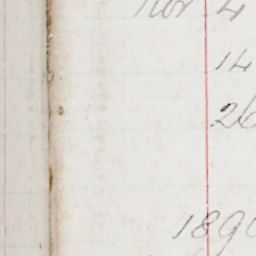 Nov 4
14
26
189